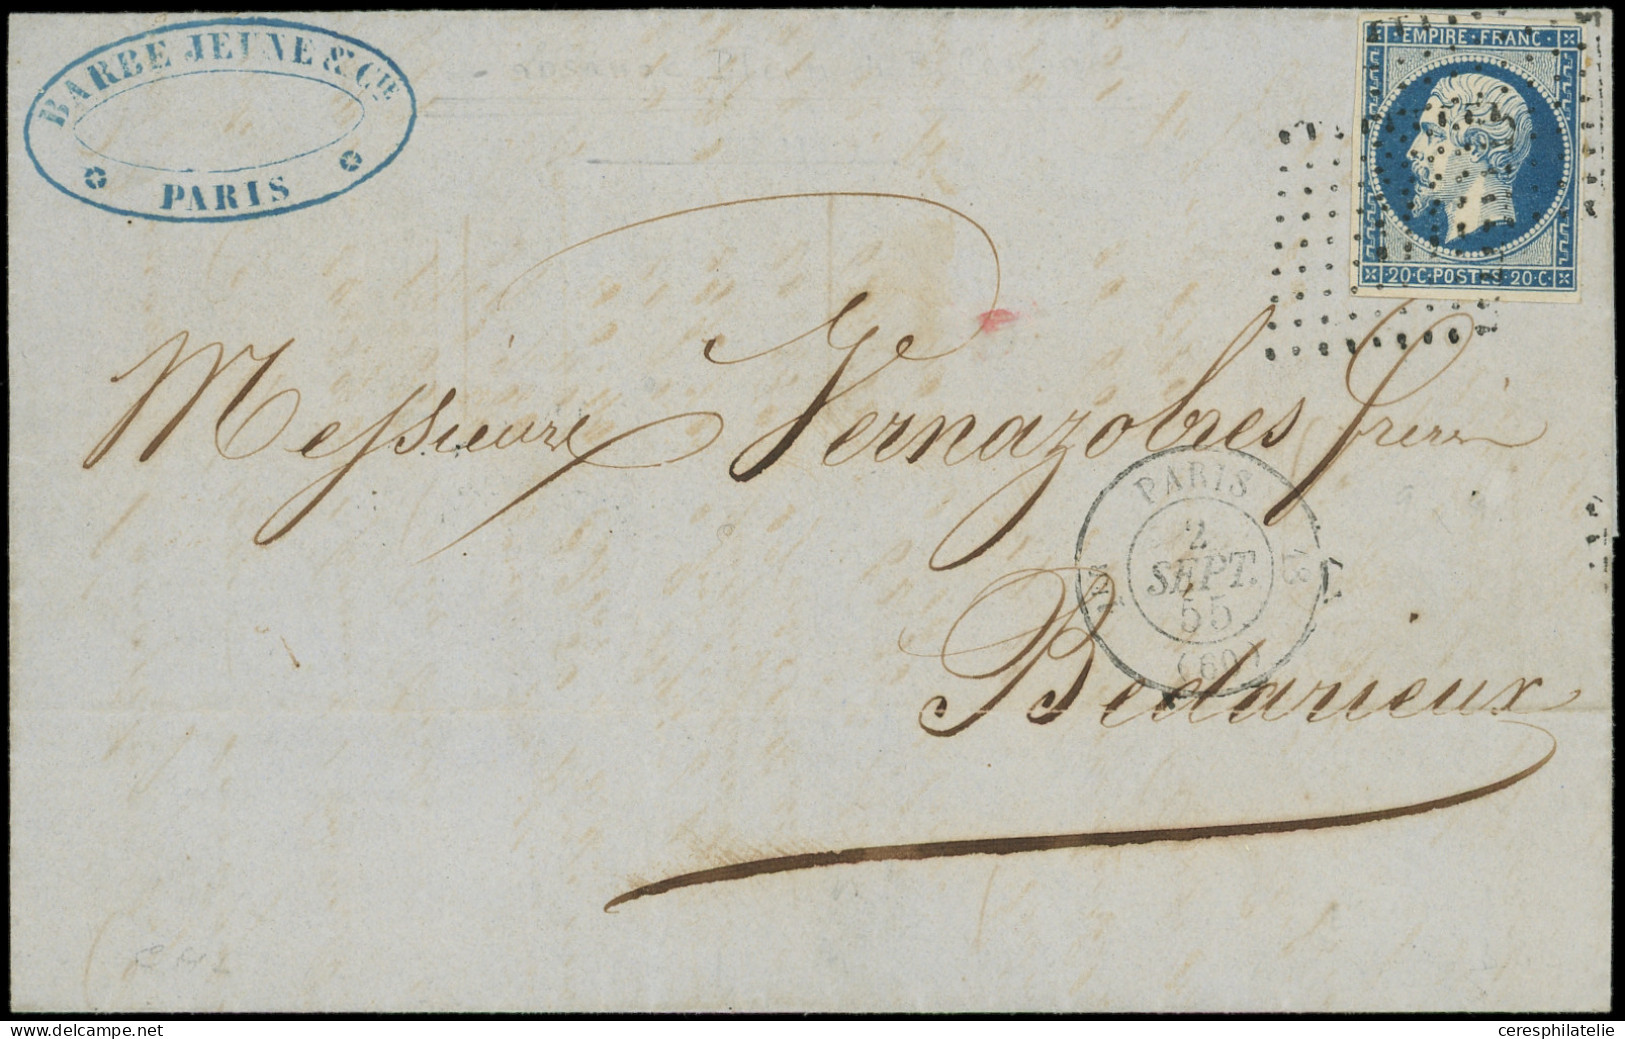 BARBE JEUNE & CIE
PARIS
EMPIRE · FRANC ·
20 · C · POSTES · 20 · C ·
Messieurs Vernazobres frères
PARIS
2
SEPT.
55
(60)
Bedarieux
www.delcampe.net
ceresphilatelie